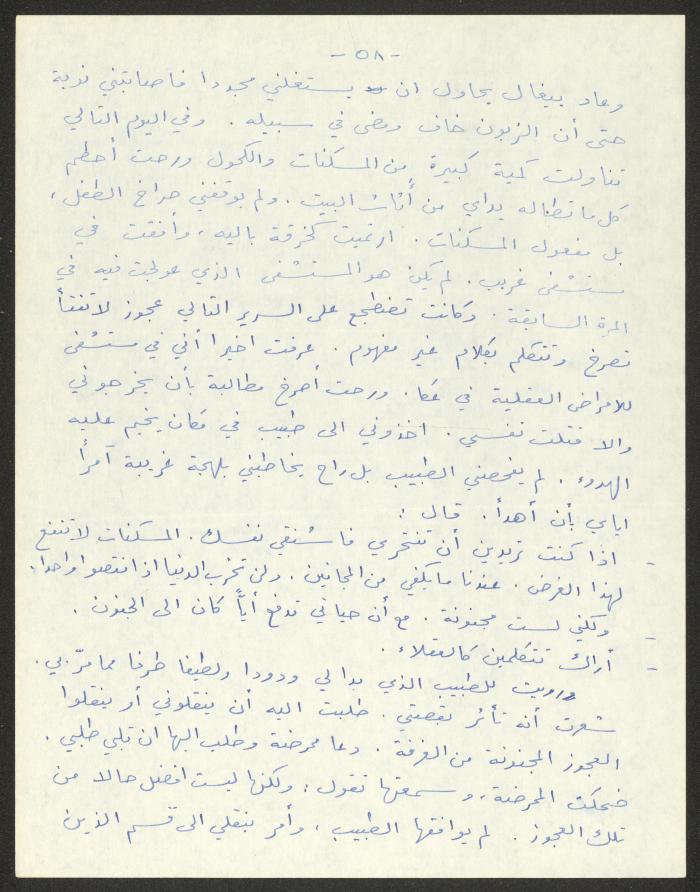 - ٥٨ -
وعاد بيغال يحاول ان يستغلني مجددا فأصابتني نوبة
حتى أن الزبون خاف ومضى في سبيله . وفي اليوم التالي
تناولت كمية كبيرة من المسكنات والكحول ورحت أحطم
كل ما تطاله يداي من أثاث البيت . ولم يوقفني صراخ الطفل ،
بل مفعول المسكنات . ارتميت كخرقة باليه ، وأفقت في
مستشفى غريب . لم يكن هو المستشفى الذي عولجت فيه في
المرة السابقة . وكانت تضطجع على السرير التالي عجوز لا تفتأ
تصرخ وتتكلم بكلام غير مفهوم . عرفت اخيرا أني في مستشفى
للامراض العقلية في عكا . ورحت أصرخ مطالبة بأن يخرجوني
والا قتلت نفسي . اخذوني الى طبيب في مكان يخيم عليه
الهدوء . لم يفحصني الطبيب بل راح يخاطبني بلهجة غريبة آمراً
اياي بأن أهدأ . قال :
- اذا كنت تريدين أن تنتحري فاشنقي نفسك . المسكنات لا تنفع
لهذا الغرض . عندنا ما يكفي من المجانين . ولن تخرب الدنيا اذا نقصوا واحدا .
- ولكني لست مجنونة . مع أن حياتي تدفع أياً كان الى الجنون .
- أراك تتكلمين كالعقلاء .
ورويت للطبيب الذي بدا لي ودودا ولطيفا طرفا مما مرّ بي .
شعرت أنه تأثر بقصتي . طلبت اليه أن ينقلوني أو ينقلوا
العجوز المجنونة من الغرفة . دعا ممرضة وطلب اليها ان تلبي طلبي .
ضحكت الممرضة ، وسمعتها تقول : ولكنها ليست افضل حالا من
تلك العجوز . لم يوافقها الطبيب ، وأمر بنقلي الى قسم الذين